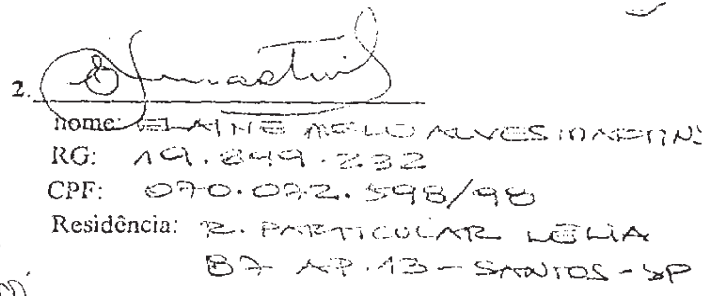 2.
nome: ELAINE MELLO ALVES MARTINS
RG: 19.849.232
CPF: 070.072.598/98
Residência: R. PARTICULAR LÉLIA
87 AP. 13 - SANTOS - SP